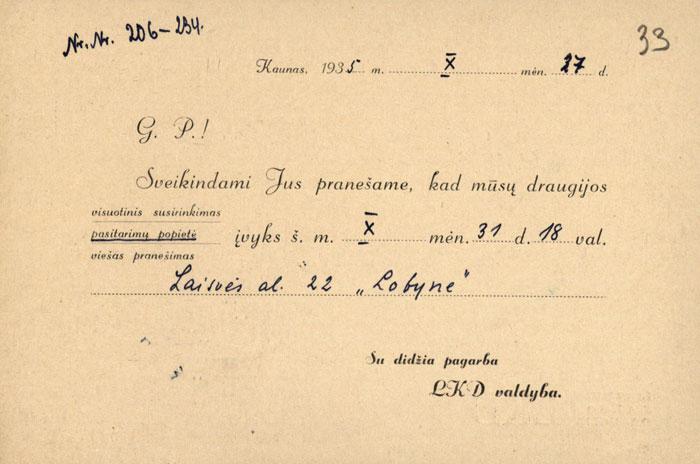 Nr. Nr. 206–234.
33
Kaunas, 1935 m. X mėn. 27 d.
G. P.!
Sveikindami Jus pranešame, kad mūsų draugijos
visuotinis susirinkimas
pasitarimų popietė įvyks š. m. X mėn. 31 d. 18 val.
viešas pranešimas
Laisvės al. 22 „Lobyne"
Su didžia pagarba
LKD valdyba.